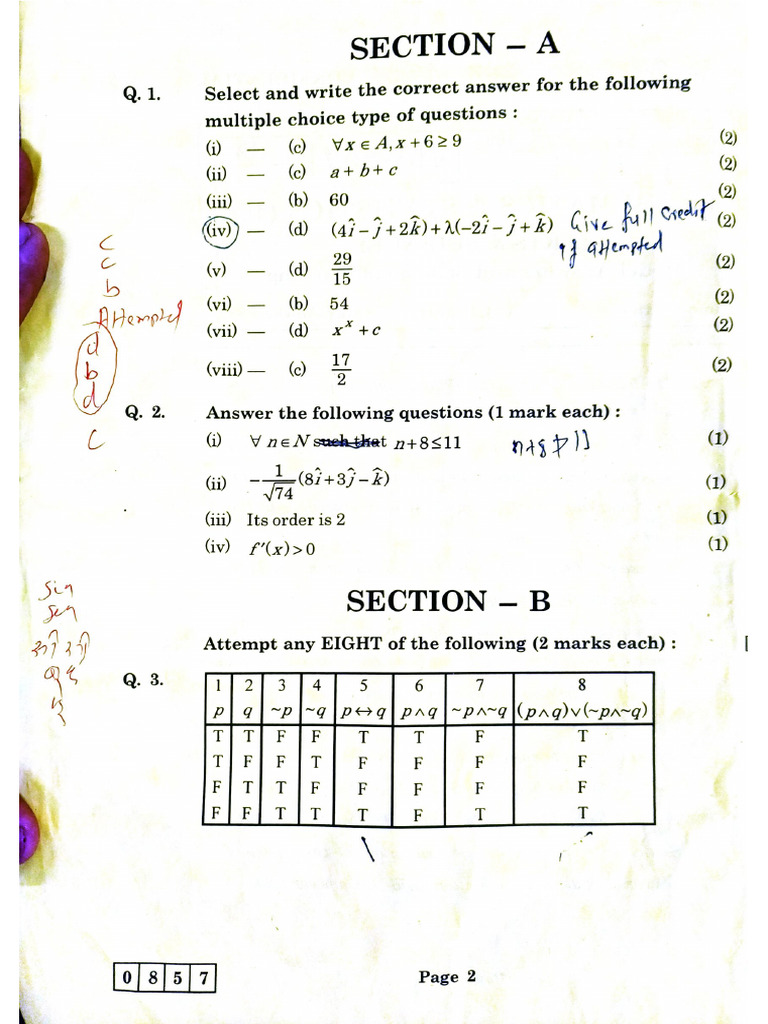 SECTION – A
Q. 1. Select and write the correct answer for the following
multiple choice type of questions :
(i) — (c) ∀x ∈ A, x + 6 ≥ 9 (2)
(ii) — (c) a + b + c (2)
(iii) — (b) 60 (2)
(iv) — (d) (4î − ĵ + 2k̂) + λ(−2î − ĵ + k̂) Give full credit (2)
if attempted
(v) — (d) 29/15 (2)
(vi) — (b) 54 (2)
(vii) — (d) xˣ + c (2)
(viii) — (c) 17/2 (2)
c
c
b
Attempted
d
b
d
c
Q. 2. Answer the following questions (1 mark each) :
(i) ∀ n ∈ N such that n+8≤11 n+8≯11 (1)
(ii) −1/√74 (8î+3ĵ−k̂) (1)
(iii) Its order is 2 (1)
(iv) f′(x) > 0 (1)
SECTION – B
Attempt any EIGHT of the following (2 marks each) : [
Q. 3.
1 2 3 4 5 6 7 8
p q ~p ~q p↔q p∧q ~p∧~q (p∧q)∨(~p∧~q)
T T F F T T F T
T F F T F F F F
F T T F F F F F
F F T T T F T T
0 8 5 7 Page 2